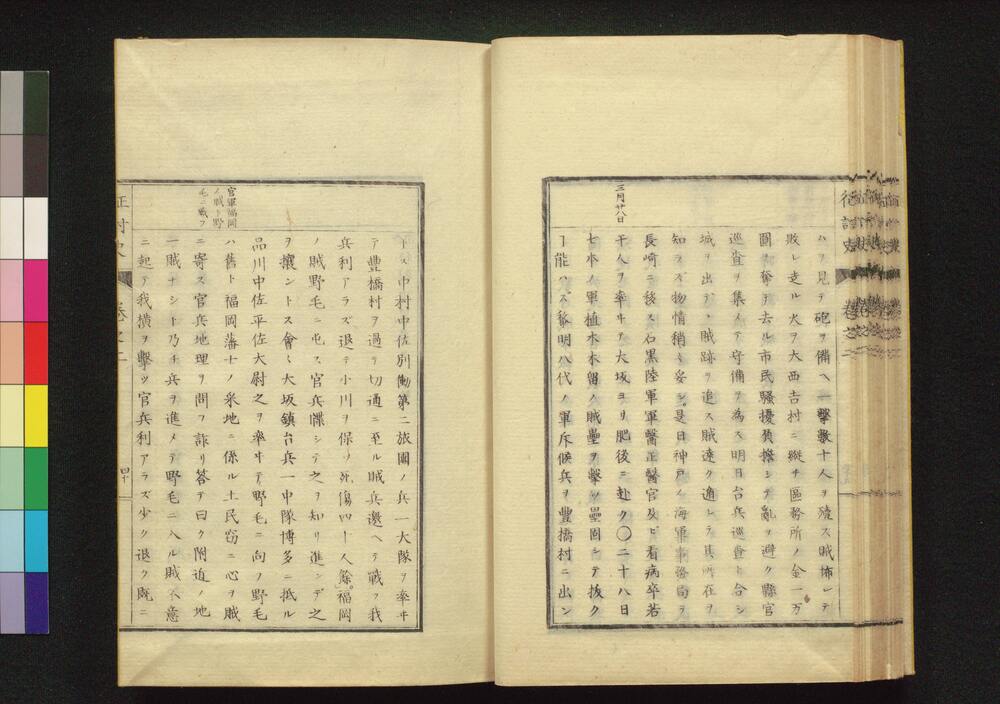 征討史
卷之
三月廿八日
ハヲ見テ砲ヲ備ヘ一擊數十人ヲ殪ス賊怖レテ
敗レ走ル火ヲ大西吉村ニ縱チ區務所ノ金一万
圓ヲ奪テ去ル市民騷擾負擔シテ亂ヲ避ク縣官
巡査ヲ集メテ守備ヲ為ス明日台兵巡査ト合シ
城ヲ出テヽ賊跡ヲ追ス賊遠ク遁レテ其所在ヲ
知ラス物情稍〻妥シ是日神戸ノ海軍事務局ヲ
長崎ニ移ス石黑陸軍軍醫正醫官及ビ看病卒若
干人ヲ率ヰテ大坂ヨリ肥後ニ赴ク〇二十八日
七本ノ軍植木木留ノ賊壘ヲ擊ツ壘固シテ拔ク
ヿ能ハズ黎明八代ノ軍斥候兵ヲ豐橋村ニ出シ
官軍福岡
ノ賊ト野
毛ニ戰フ
ヿス中村中佐別働第二旅團ノ兵一大隊ヲ率ヰ
テ豐橋村ヲ過ラ切通ニ至ル賊兵邀ヘテ戰フ我
兵利アラズ退テ小川ヲ保ツ死傷四十人餘福岡
ノ賊野毛ニ屯ス官兵諜シテ之ヲ知リ進ンデ之
ヲ攘ントス會〻大坂鎮台兵一中隊博多ニ抵ル
品川中佐平佐大尉之ヲ率ヰテ野毛ニ向フ野毛
ハ舊ト福岡藩士ノ采地ニ係ル土民窃ニ心ヲ賊
ニ寄ス官兵地理ヲ問フ詠リ答テ曰ク附近ノ地
一賊ナシト乃チ兵ヲ進メテ野毛ニ入ル賊不意
ニ起テ我横ヲ擊ツ官兵利アラズ少ク退ク既ニ
征討史
卷之二
四十